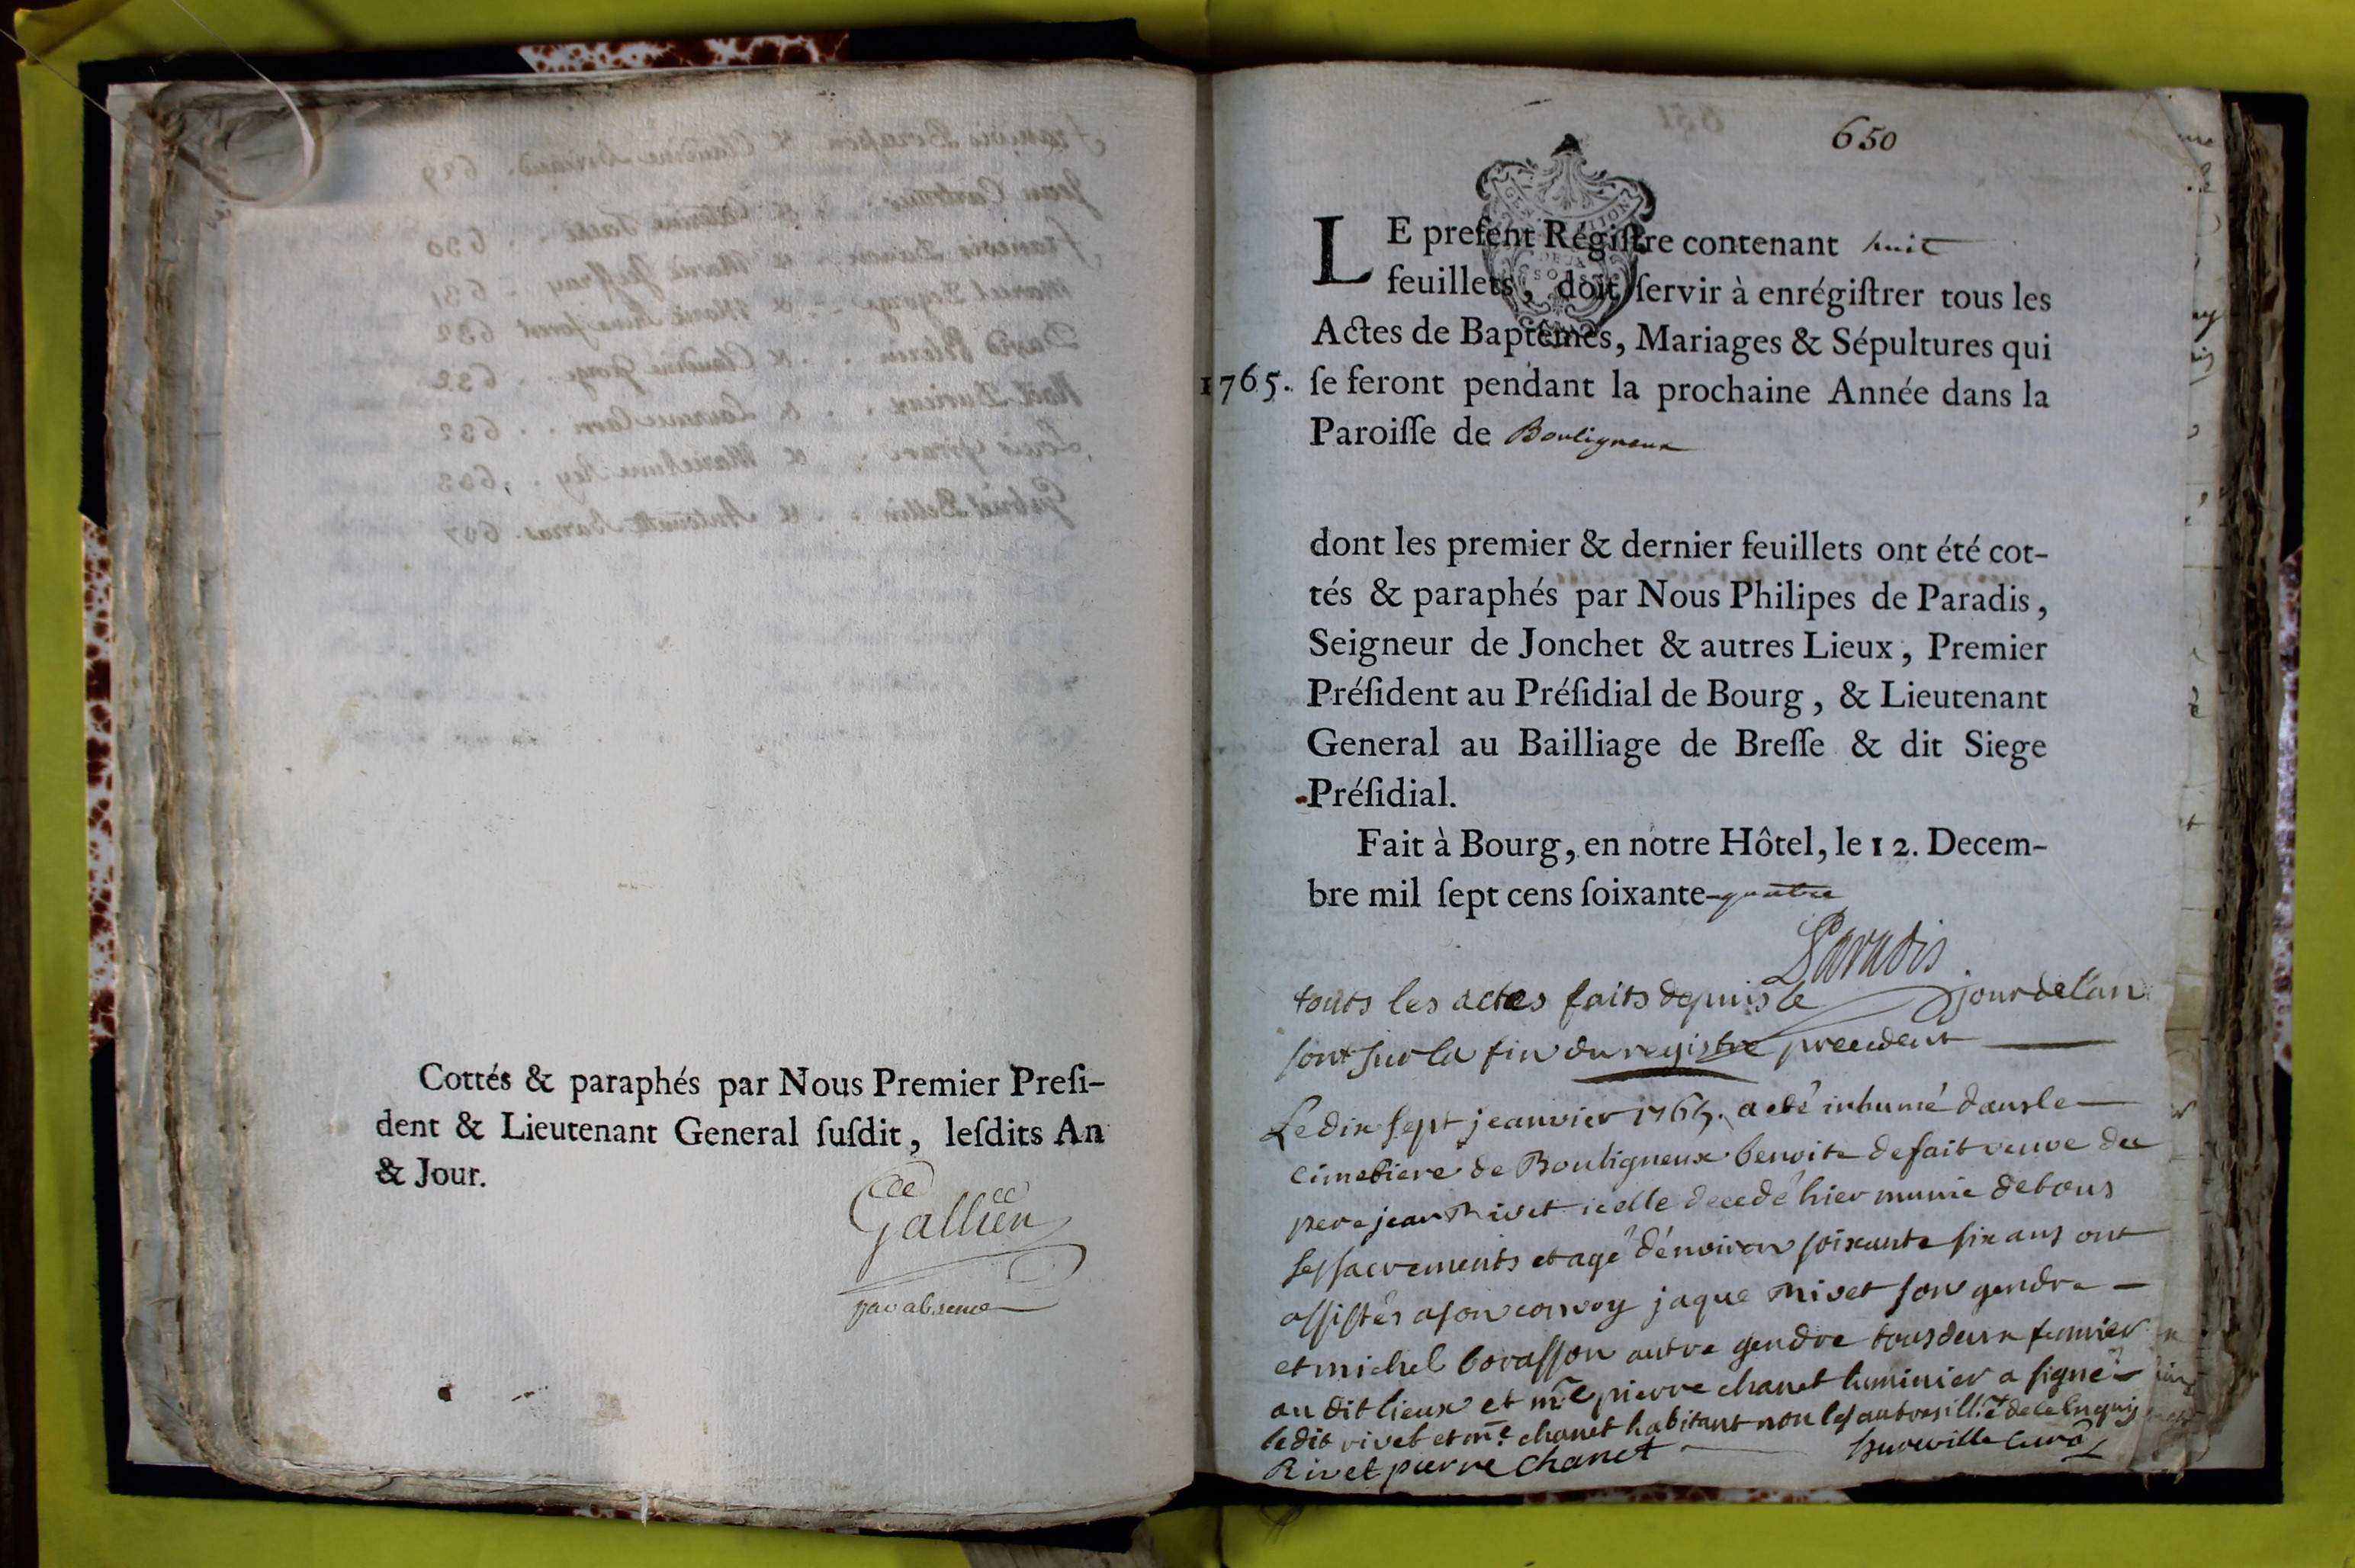 Cottés & paraphés par Nous Premier Presi-
dent & Lieutenant General susdit, lesdits An
& Jour.
Gallien
par absence
650
GEN
DEUX
SOLS
LE present Régistre contenant huit
feuillets, doit servir à enrégistrer tous les
Actes de Baptêmes, Mariages & Sépultures qui
1765. se feront pendant la prochaine Année dans la
Paroisse de Bouligneux
dont les premier & dernier feuillets ont été cot-
tés & paraphés par Nous Philipes de Paradis,
Seigneur de Jonchet & autres Lieux, Premier
Président au Présidial de Bourg, & Lieutenant
General au Bailliage de Bresse & dit Siege
Présidial.
Fait à Bourg, en notre Hôtel, le 12. Decem-
bre mil sept cens soixante-quatre
Paradis
touts les actes faits depuis le jour de l'an
sont sur la fin du registre precedent
Le dix sept jeanvier 1765. a eté inhumé dans le
cimetiere de Bouligneux benoite defait veuve de
pere jean Rivet icelle decedé hier munie de tous
ses sacrements et agé d'environ soixante six ans ont
assistés a son convoy jaque Rivet son gendre
et michel borasson autre gendre tous deux
au dit lieux et me pierre chanet luminier a signé
ledit rivet et me chanet habitant non les autres de ce enquis
Rivet pierre Chanet curé